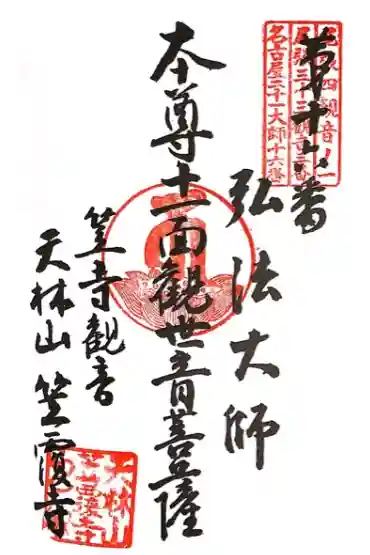 第十六番
弘法大師
本尊十一面観世音菩薩
笠寺観音
天林山 笠覆寺
尾張四観音ノ一
尾張三十三観音三番
名古屋二十一大師十六番